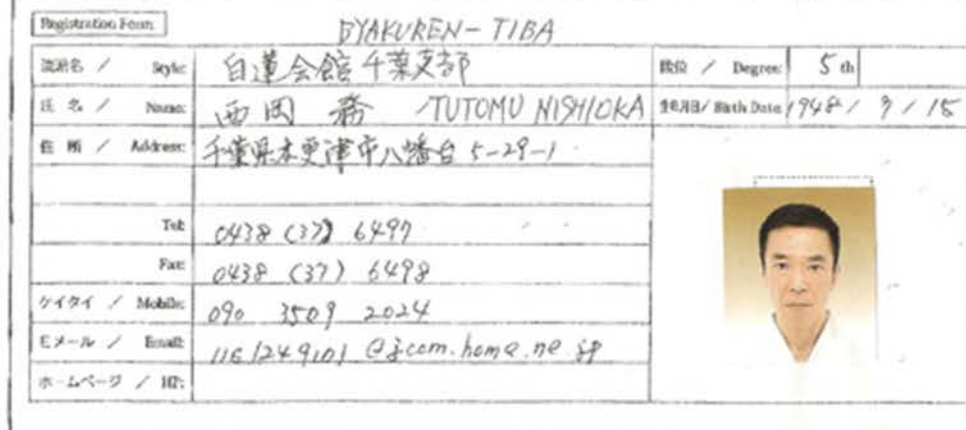 Registration Form
BYAKUREN-TIBA
流派名 / Style: 白蓮会館 千葉支部
段位 / Degree: 5 th
氏名 / Name: 西岡 務 /TUTOMU NISHIOKA
生年月日/ Birth Date: 1948 / 9 / 15
住所 / Address: 千葉県木更津市八幡台 5-29-1
Tel: 0438 (37) 6497
Fax: 0438 (37) 6498
ケイタイ / Mobile: 090 3509 2024
Eメール / Email: 1161249101 @jcom.home.ne.jp
ホームページ / HP: